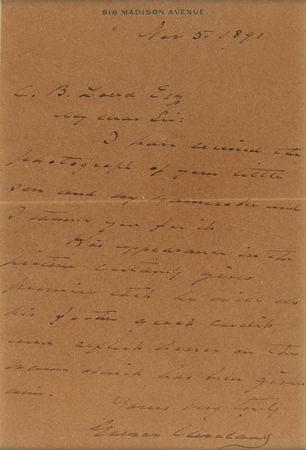 816 MADISON AVENUE.
Nov 5. 1891
C. B. Lord Esq
My dear Sir:
I have received the
photograph of your little
son and my namesake and
I thank you for it
His appearance in the
picture certainly gives
promise that he will do
his father great credit
and reflect honor on the
name which has been given
him.
Yours very truly
Grover Cleveland